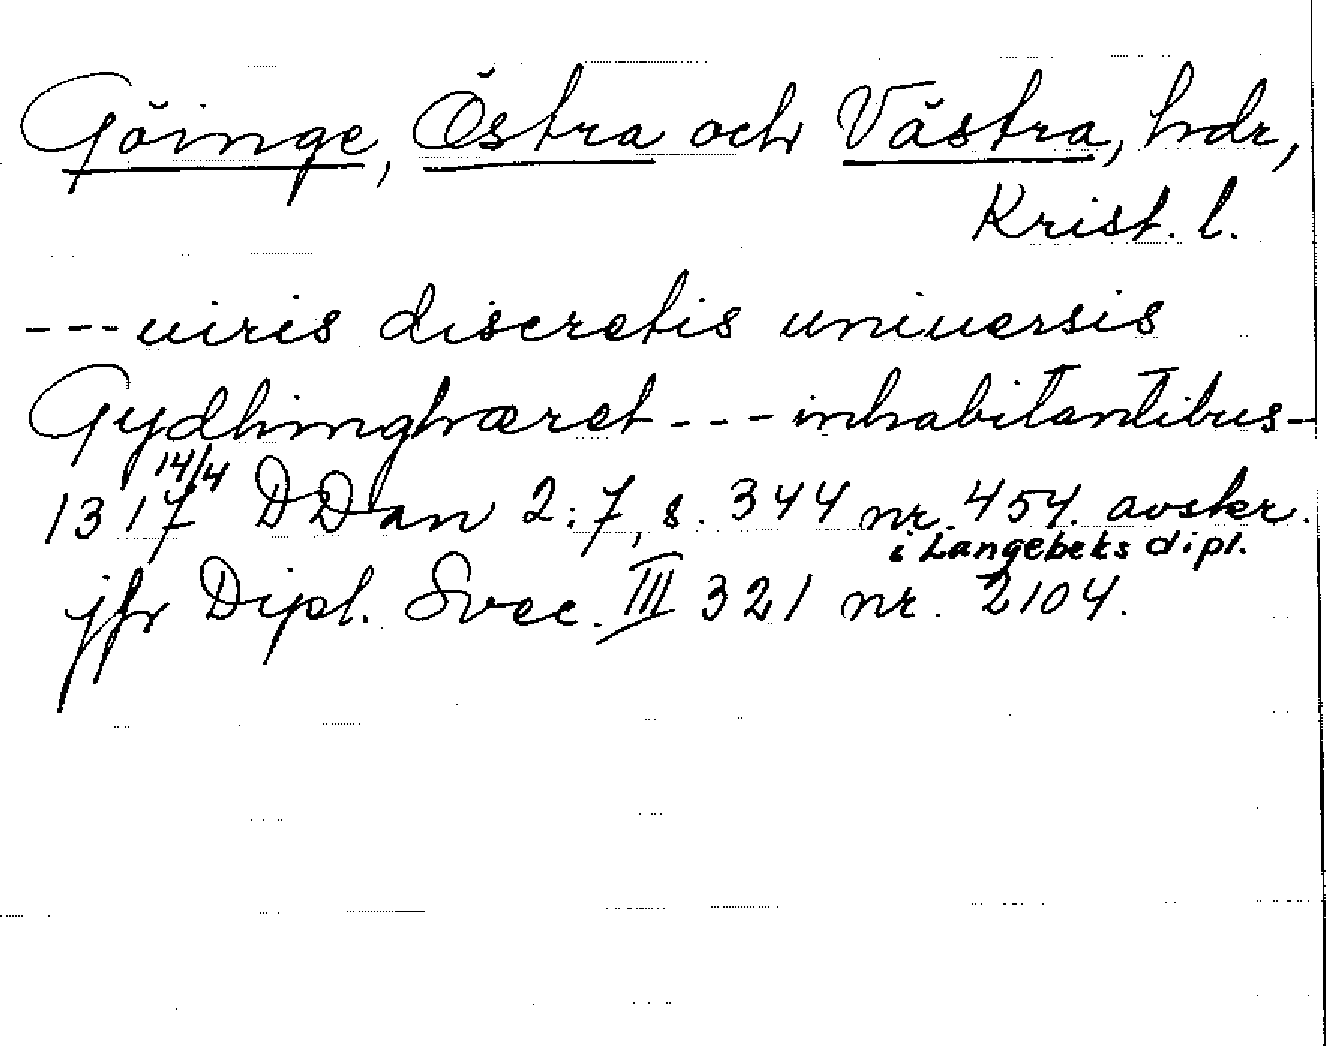 Göinge, Östra och Västra, hdr,
Krist. l.
---uiris discretis uniuersis
Gydhinghæret --- inhabitantibus-
1317 14/4 DDan 2:7, s. 344 nr. 454. avskr.
i Langebeks dipl.
jfr Dipl. Svec. III 321 nr. 2104.